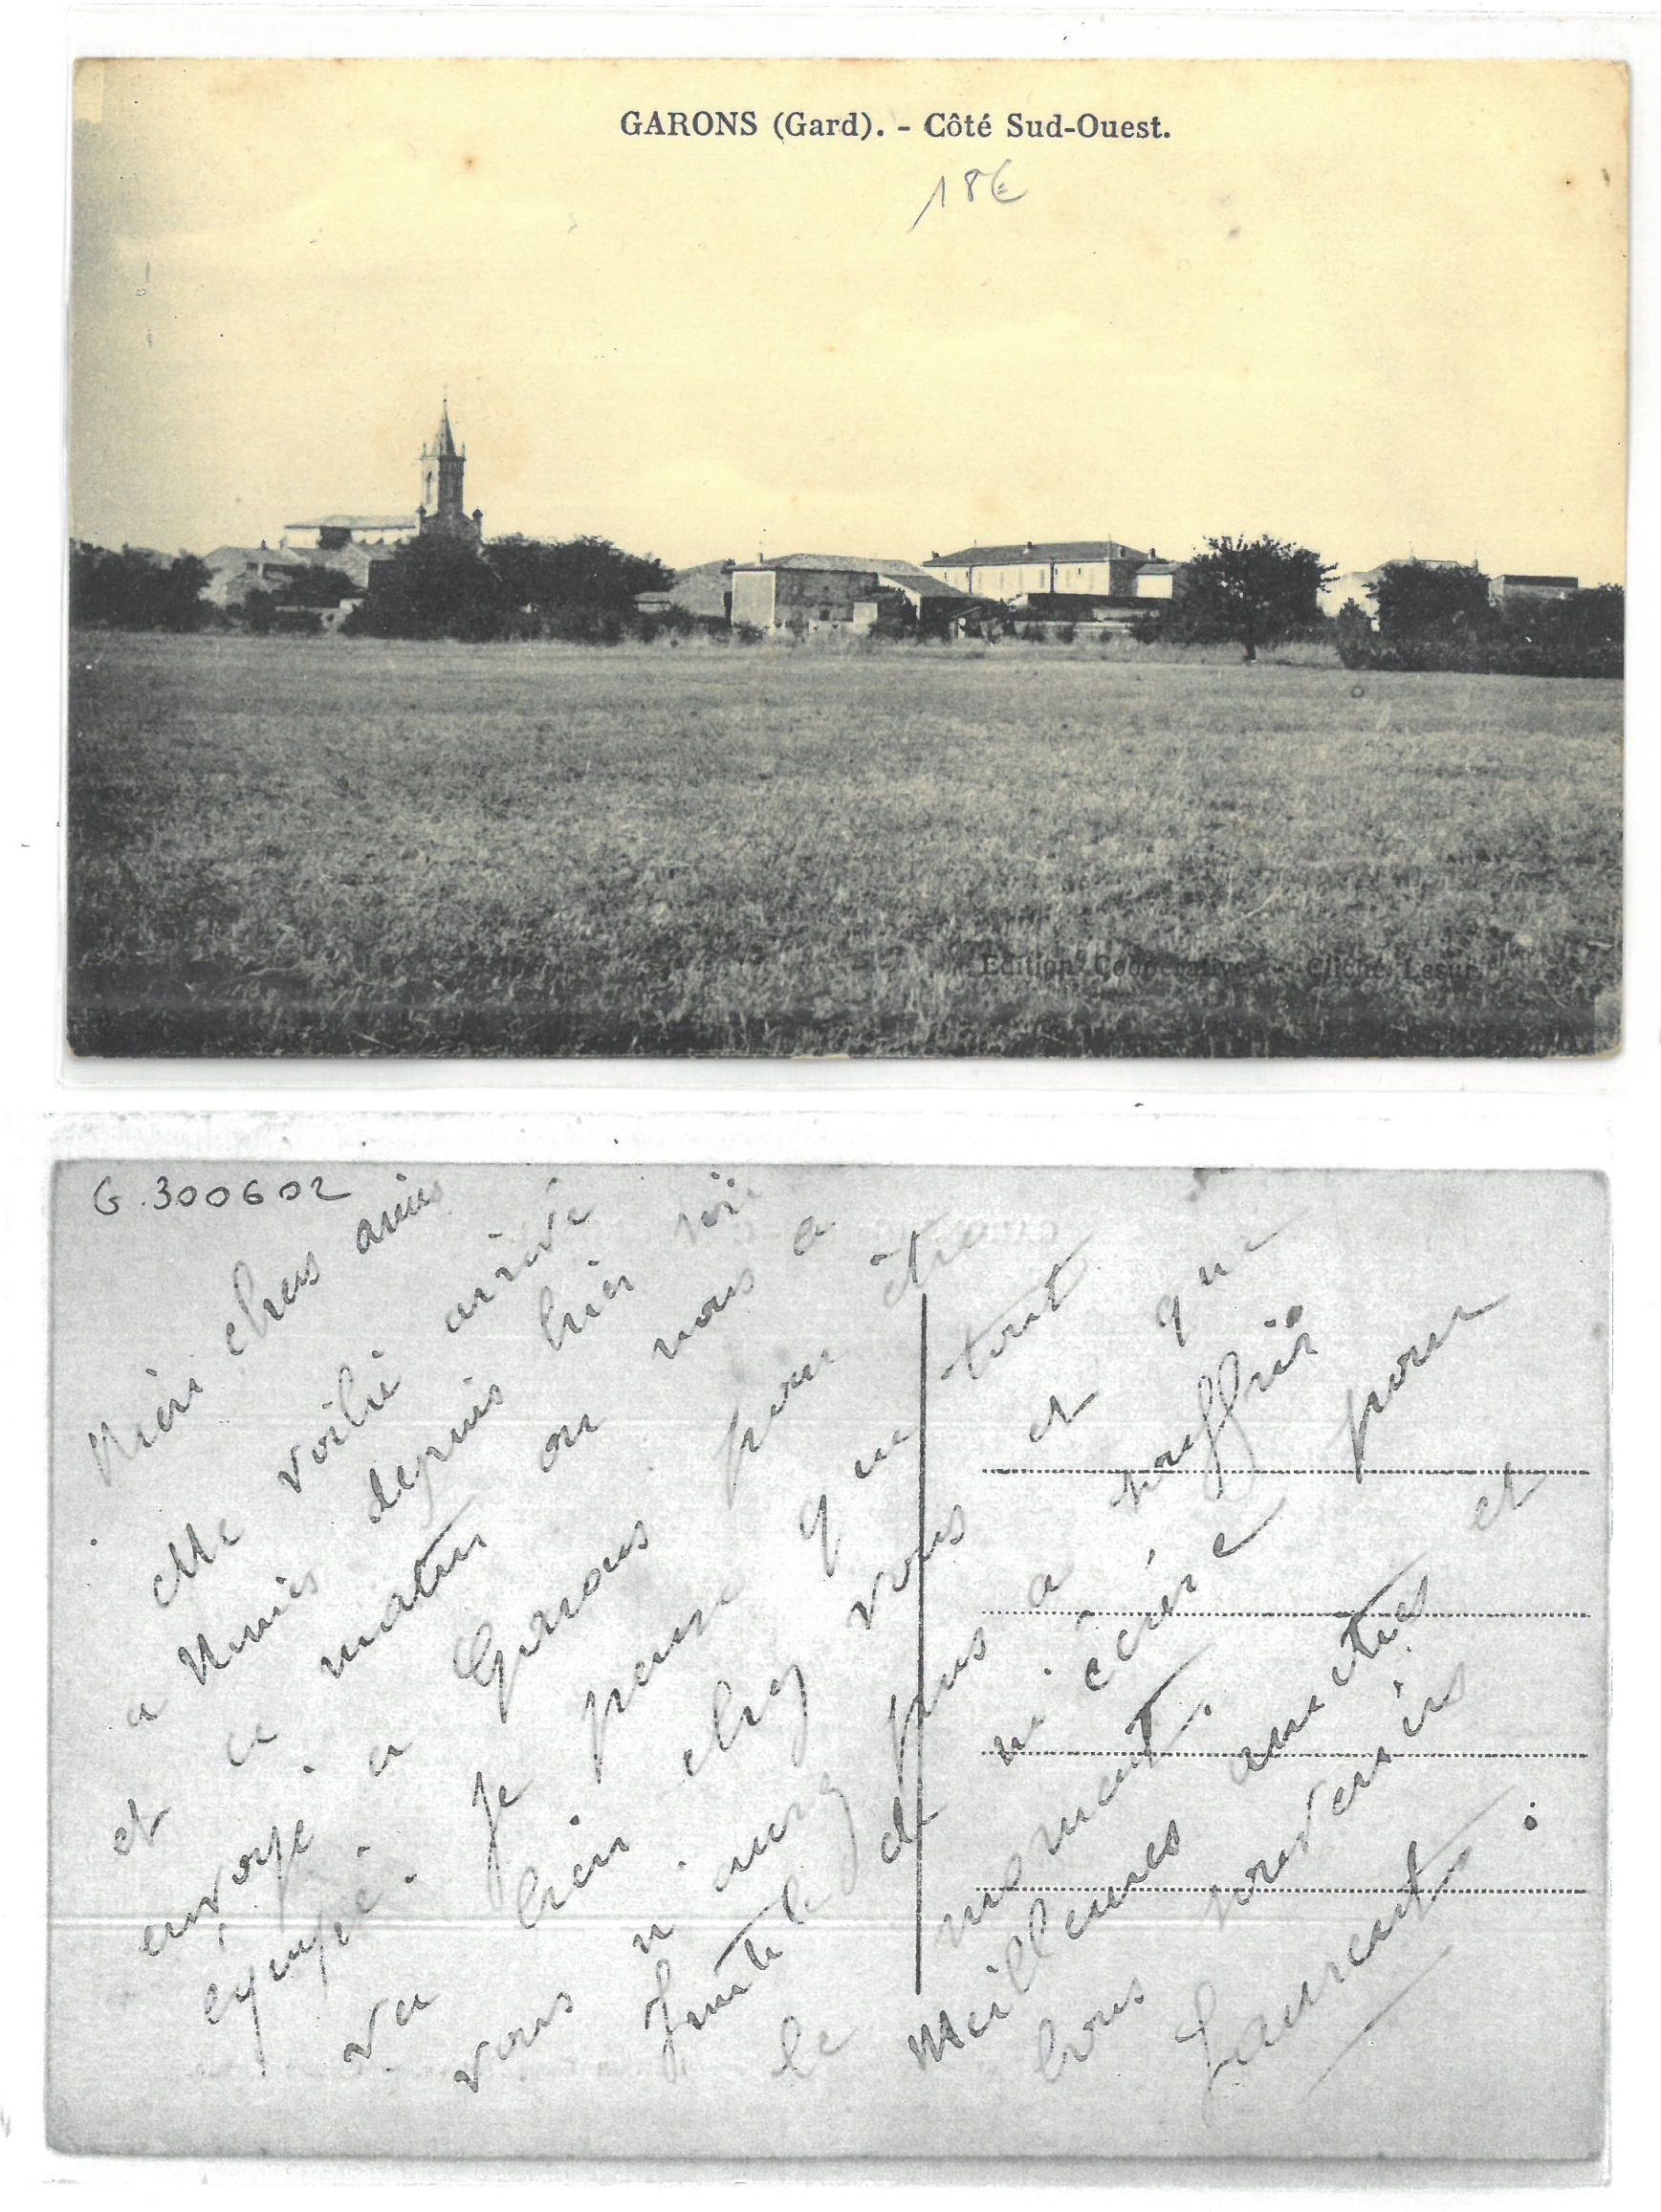 GARONS (Gard). - Côté Sud-Ouest.
18€
Edition Coopérative. - Cliché Lesur.
G.300602
chers amis
Me voilà arrivé
a Nimes depuis hier soir
et ce matin on nous a
envoyé a Garons pour être
équipé. Je pense que tout
va bien chez vous et que
vous n'aurez pas a souffrir
Inutile de m'écrire pour
le moment.
Meilleures amitiés et
bons souvenirs
Laurent.